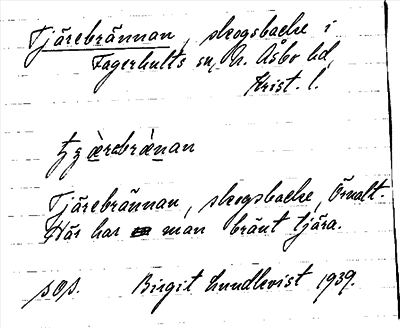 Tjärebrännan, skogsbacke i
Fagerhults sn, N. Åsbo hd,
Krist. l.
Tjärebrännan, skogsbacke, Örnalt.
Här har man bränt tjära.
Birgit Lundkvist 1939.